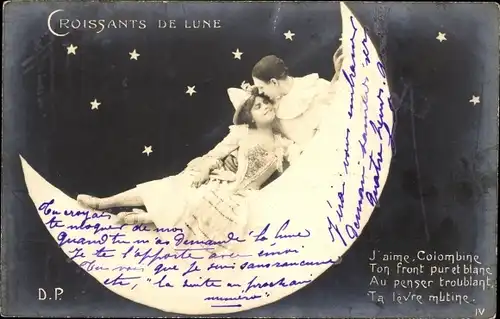 CROISSANTS DE LUNE
Tu croyais
te moquer de moi
Quand tu m'as demandé la lune
Je te l'apporte avec
Tu vois que je suis sans rancune
"la suite au prochain
numéro"
J'irai vous embrasser
Demain
quatre
J'aime, Colombine
Ton front pur et blanc
Au penser troublant,
Ta lèvre mutine.
D.P.
IV